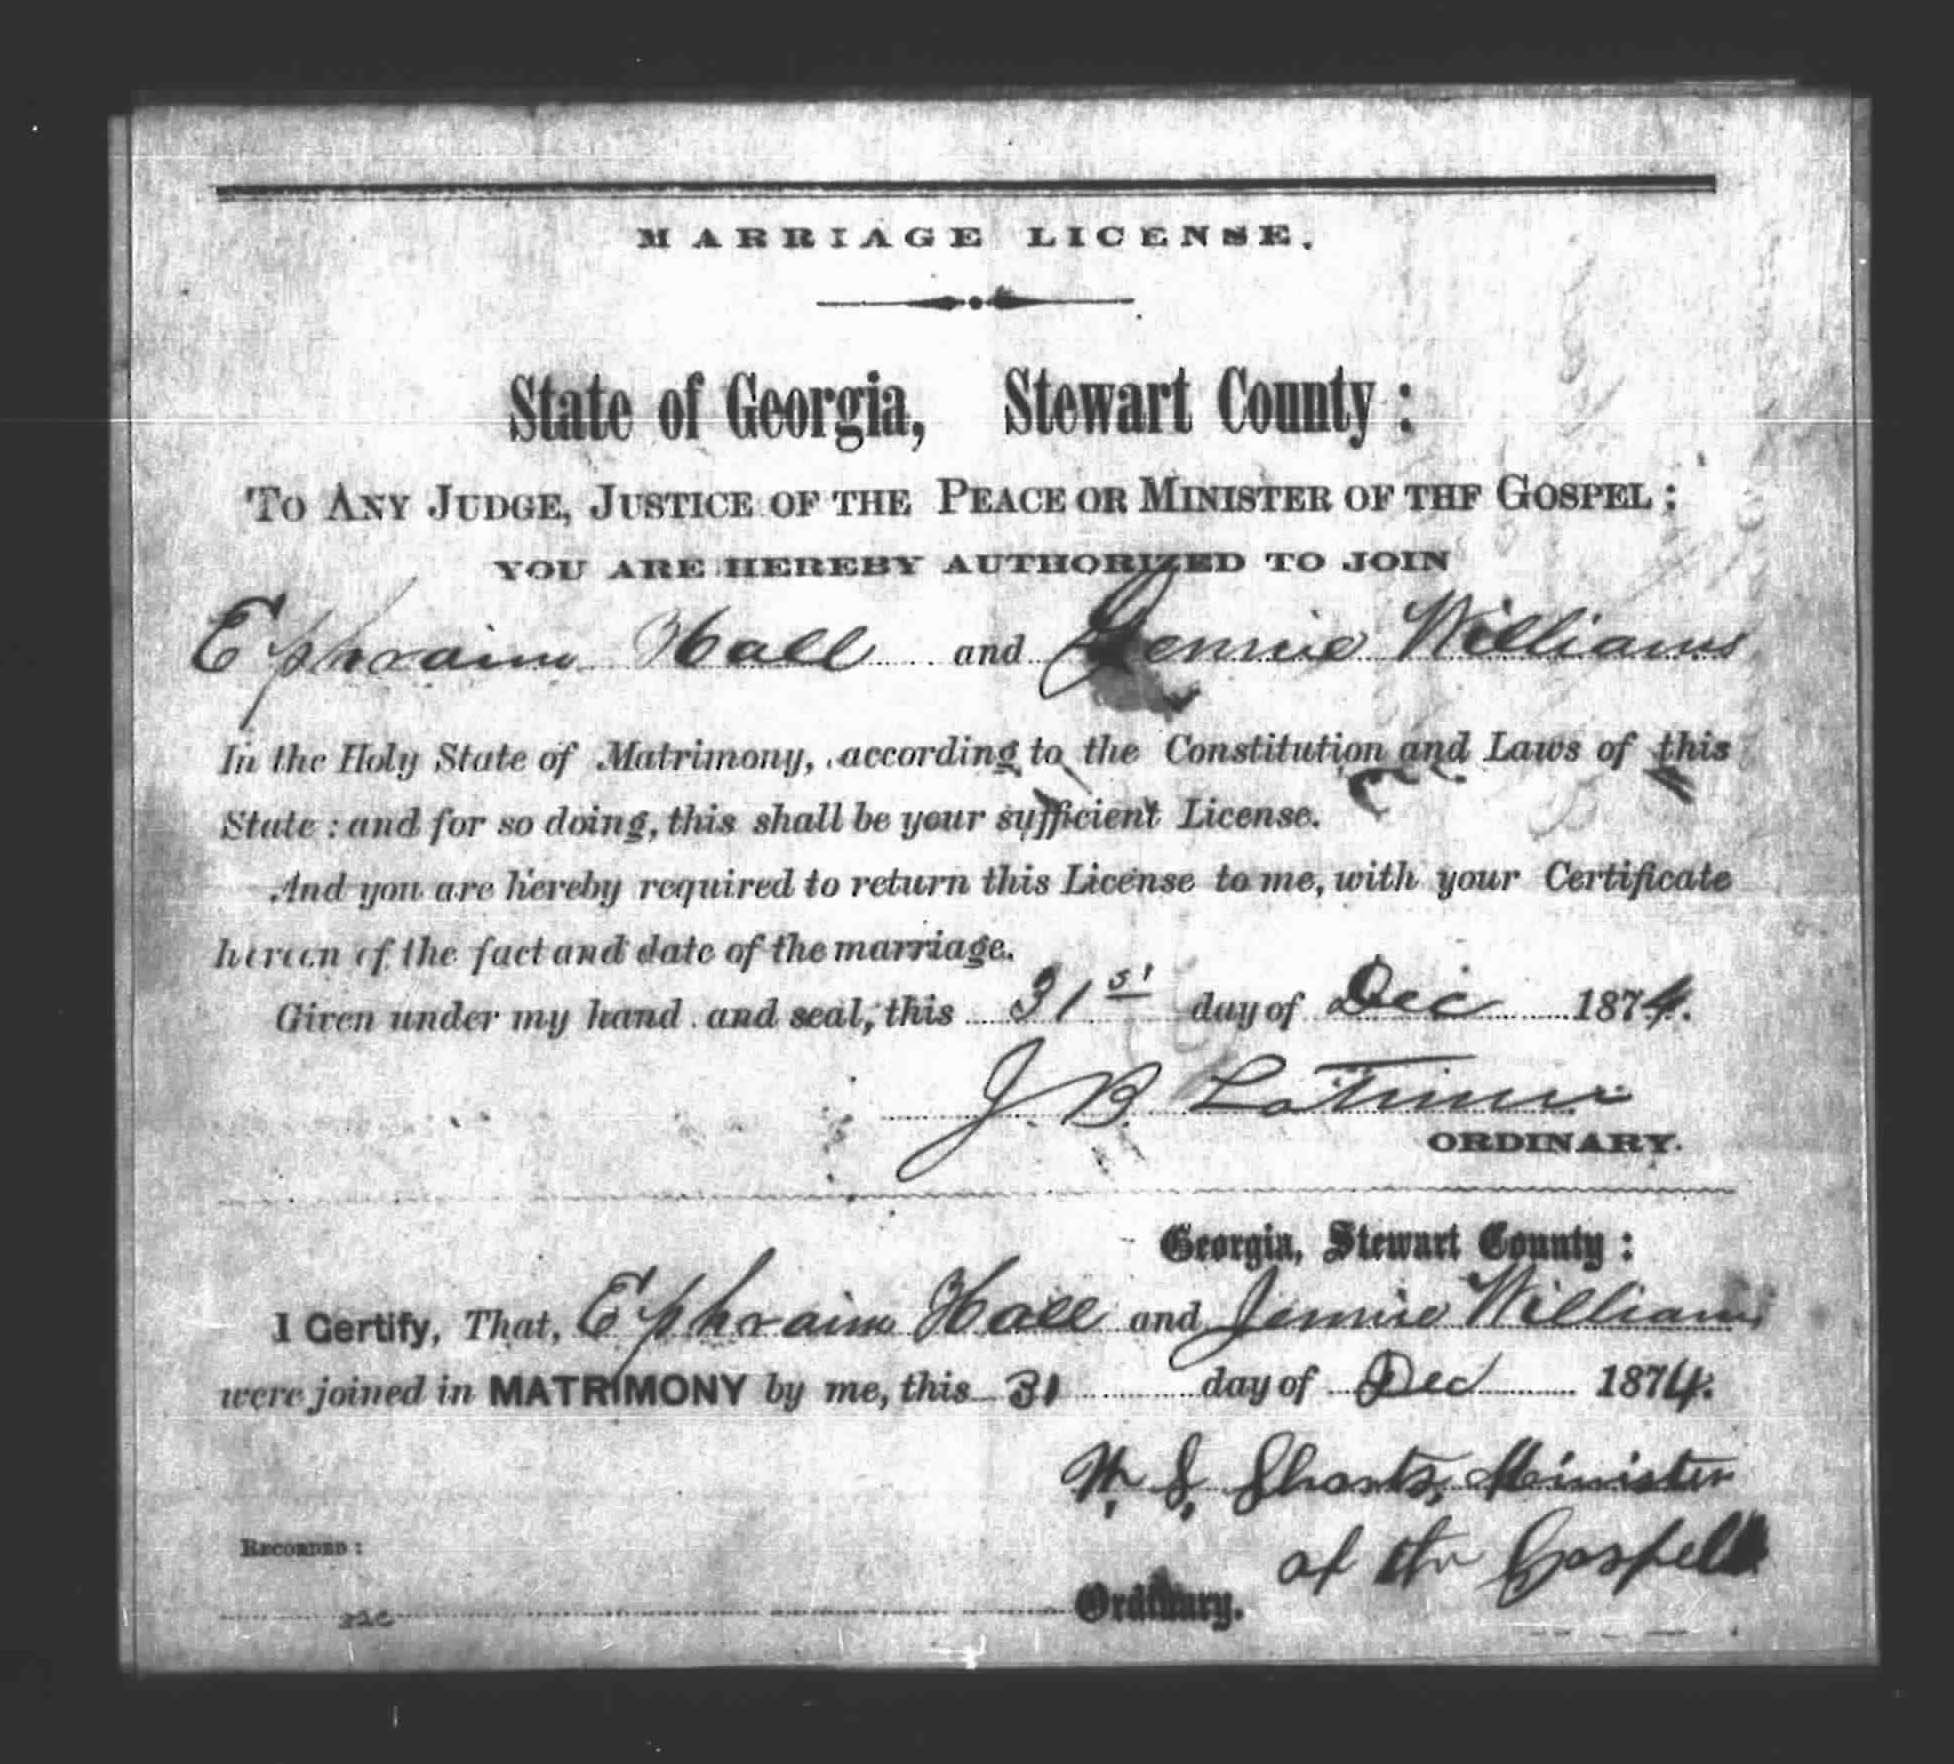 MARRIAGE LICENSE.
State of Georgia, Stewart County:
TO ANY JUDGE, JUSTICE OF THE PEACE OR MINISTER OF THE GOSPEL:
YOU ARE HEREBY AUTHORIZED TO JOIN
Ephraim Hall and Jennie Williams
In the Holy State of Matrimony, according to the Constitution and Laws of this
State: and for so doing, this shall be your sufficient License.
And you are hereby required to return this License to me, with your Certificate
hereon of the fact and date of the marriage.
Given under my hand and seal, this 31st day of Dec 1874.
J. B. Latimer
ORDINARY.
Georgia, Stewart County:
I Certify, That, Ephraim Hall and Jennie Williams
were joined in MATRIMONY by me, this 31 day of Dec 1874.
Minister
of the Gospel
RECORDED:
Ordinary.